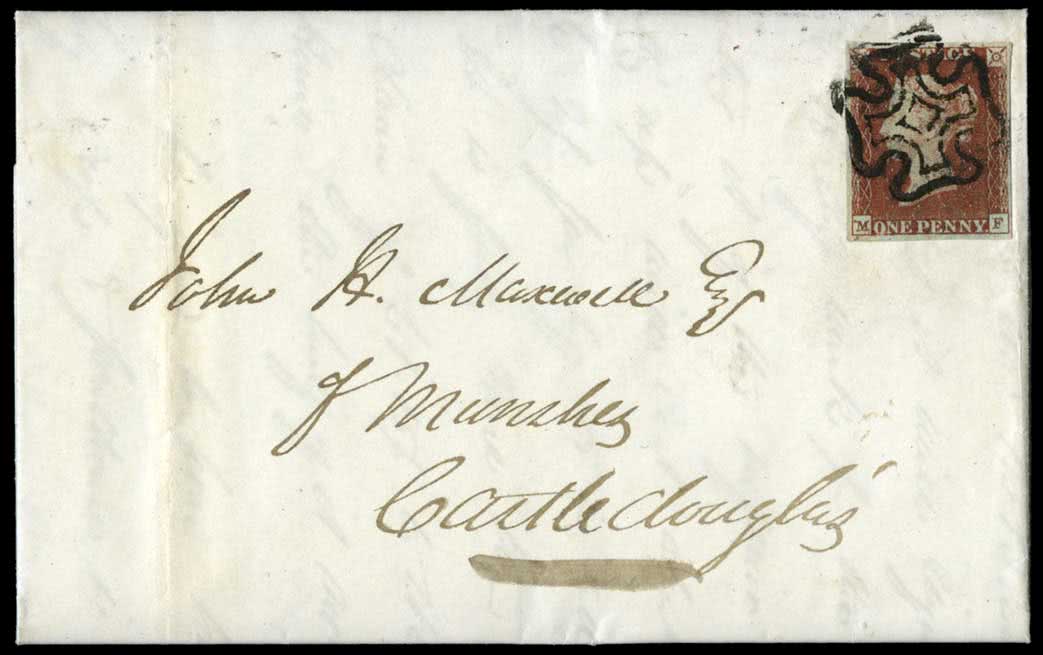 POSTAGE
M ONE PENNY F
John H. Maxwell Esq
of Munshes
Castledouglas